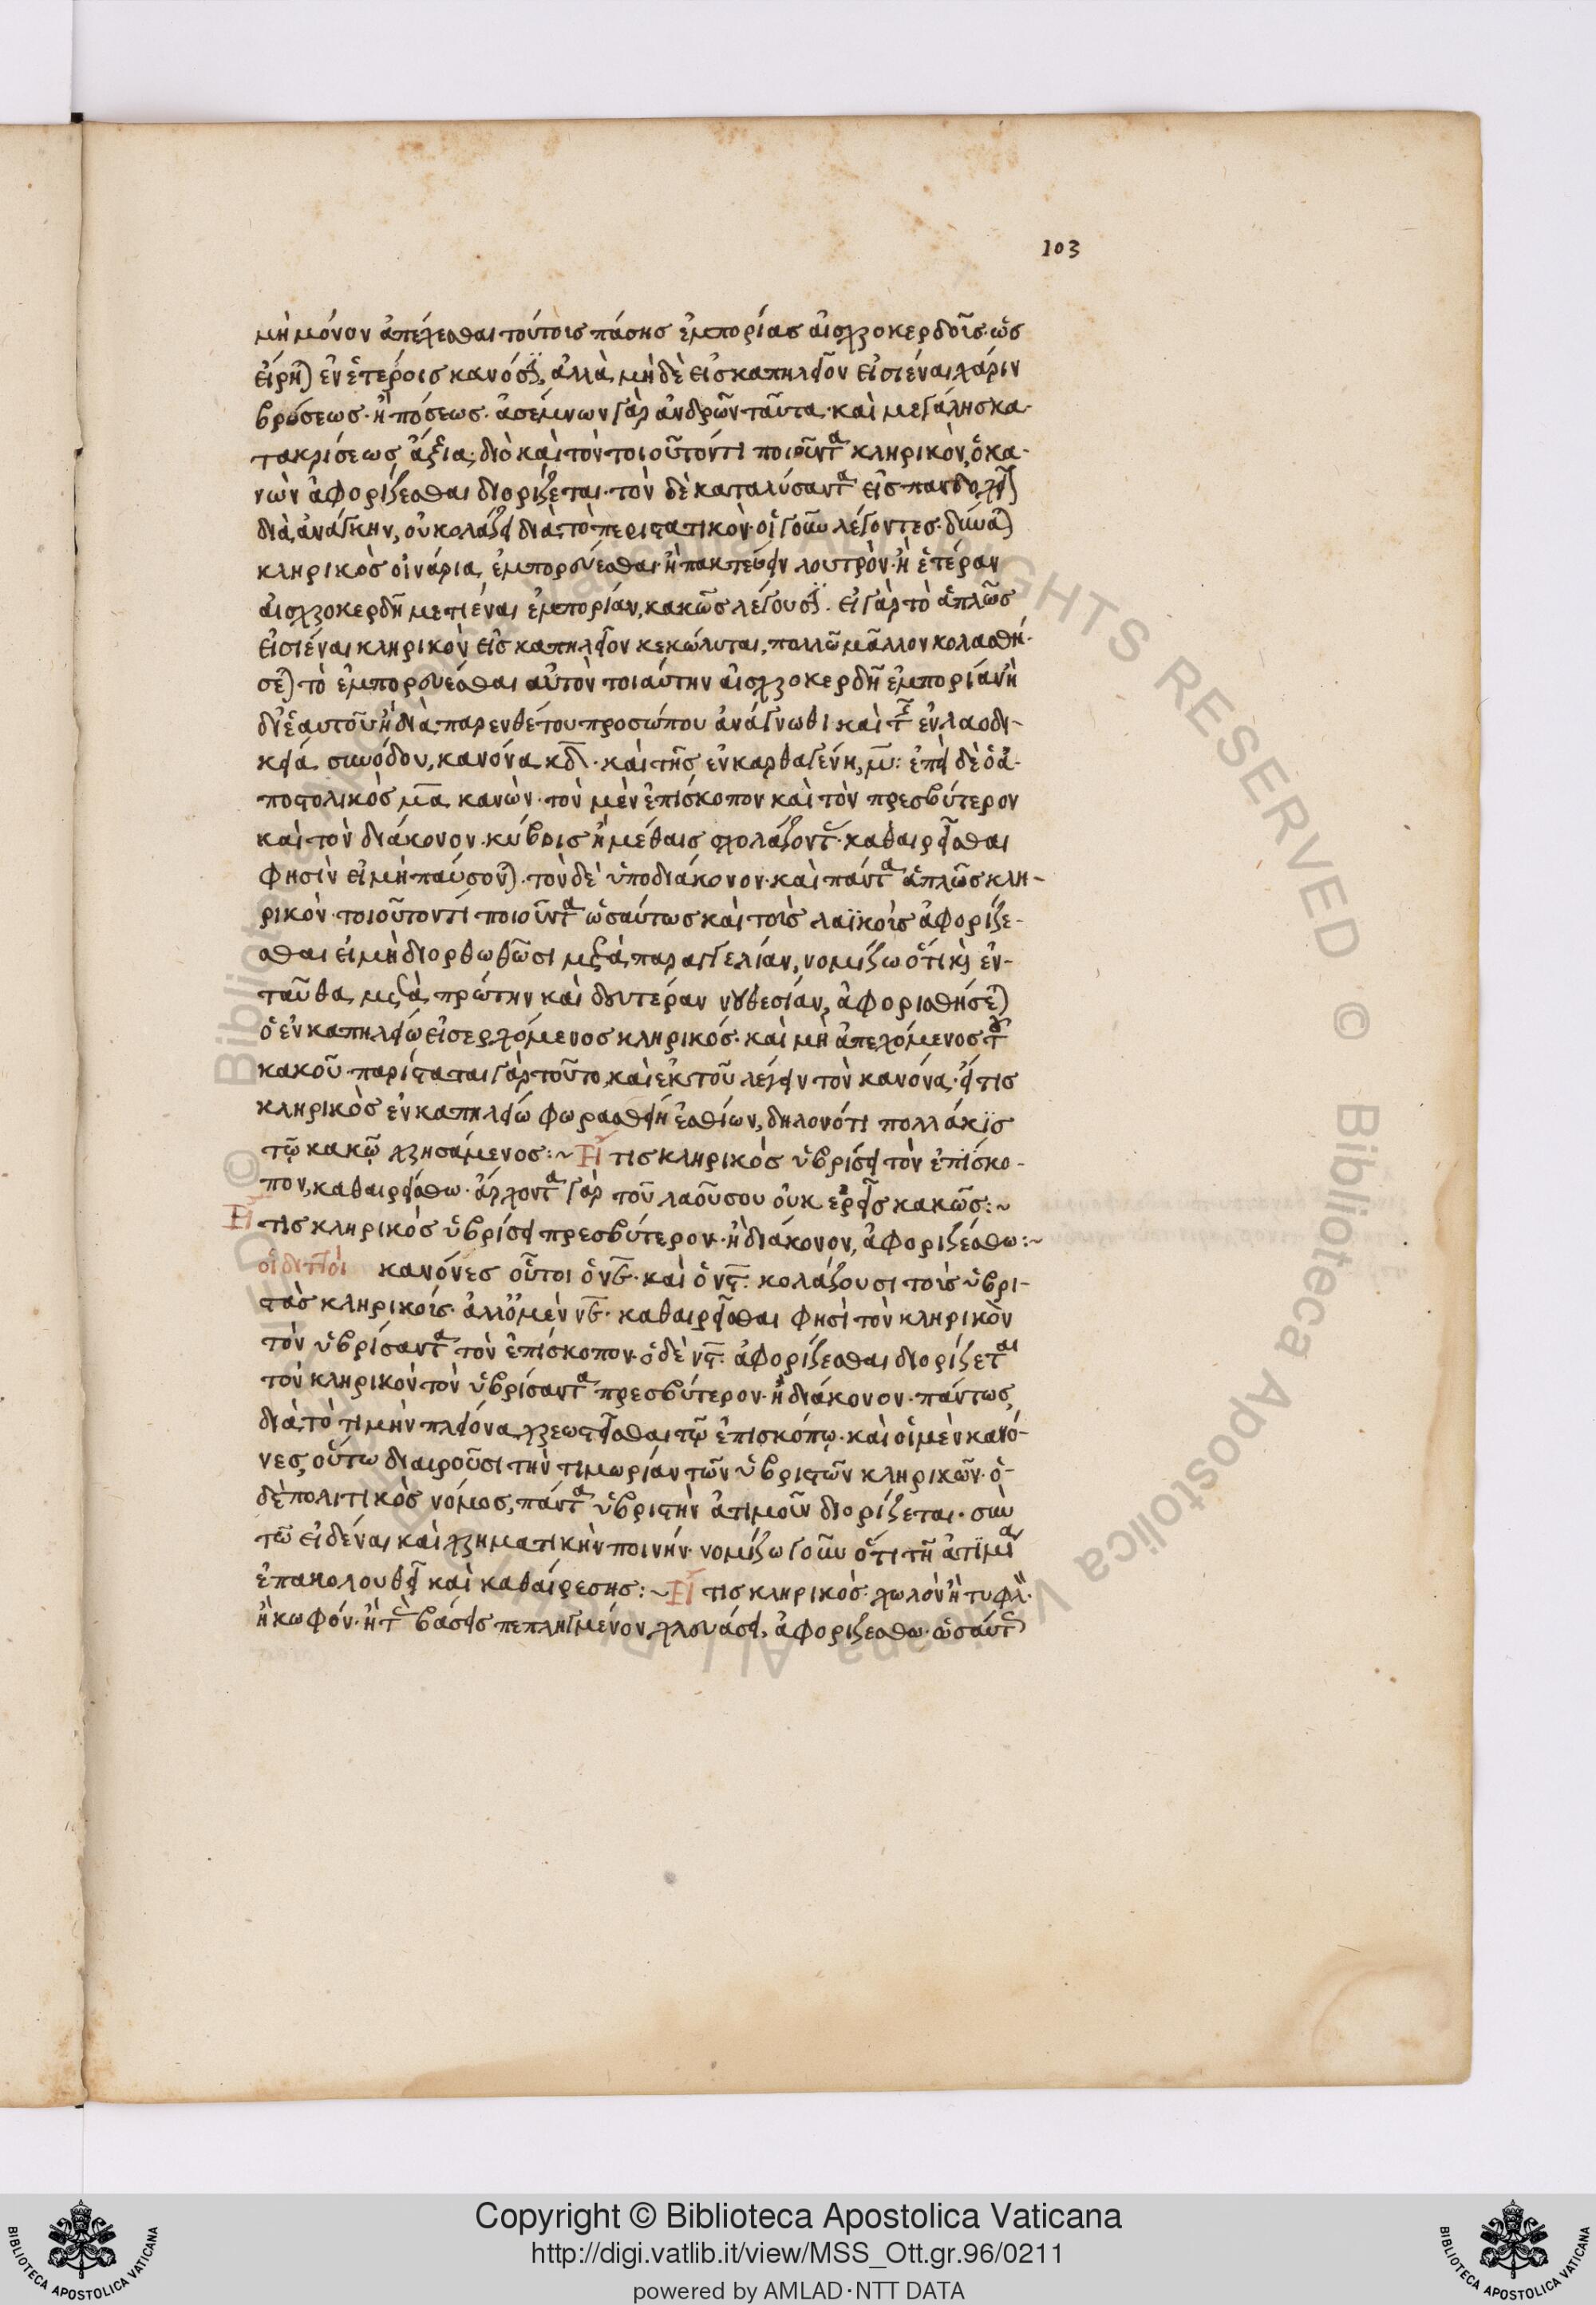 103
μὴ μόνον ἀπέχεσθαι τούτοις πάσης ἐμπορίας αἰσχροκερδοῦς· ὡς
εἴρηται ἐν ἑτέροις κανόσι, ἀλλὰ μὴ δὲ εἰς καπηλεῖον εἰσιέναι χάριν
βρώσεως· ἢ πόσεως· ἀσέμνων γὰρ ἀνδρῶν ταῦτα· καὶ μεγάλης κα-
τακρίσεως ἄξια· διὸ καὶ τὸν τοιοῦτόν τι ποιοῦντα κληρικὸν, ὁ κα-
νὼν ἀφορίζεσθαι διορίζεται· τὸν δὲ καταλύσαντα εἰς πανδοχεῖον
διὰ ἀνάγκην, οὐ κολάζει διὰ τὸ περιστατικόν· οἱ γοῦν λέγοντες· δύναται
κληρικὸς οἰνάρια ἐμπορεύεσθαι· ἢ πακτεύειν λουτρὸν· ἢ ἑτέραν
αἰσχροκερδῆ μετιέναι ἐμπορίαν, κακῶς λέγουσι. εἰ γὰρ τὸ ἁπλῶς
εἰσιέναι κληρικὸν εἰς καπηλεῖον κεκώλυται, πολλῶ μᾶλλον κολασθή-
σεται τὸ ἐμπορεύεσθαι αὐτὸν τοιαύτην αἰσχροκερδῆ ἐμπορίαν ἢ
δι' ἑαυτοῦ ἢ διὰ παρενθέτου προσώπου ἀνάγνωθι καὶ τῆς ἐν λαοδι-
κεία συνόδου, κανόνα κδ· καὶ τῆς ἐν καρθαγένη, μ: ἐπεὶ δὲ ὁ ἀ-
ποστολικὸς μα κανὼν· τὸν μὲν ἐπίσκοπον καὶ τὸν πρεσβύτερον
καὶ τὸν διάκονον· κύβοις ἢ μέθαις σχολάζοντας· καθαιρεῖσθαι
φησὶν εἰ μὴ παύσονται· τὸν δὲ ὑποδιάκονον· καὶ πάντα ἁπλῶς κλη-
ρικὸν· τοιοῦτον τί ποιοῦντα ὡσαύτως καὶ τοὺς λαϊκοὺς ἀφορίζε-
σθαι εἰ μὴ διορθωθῶσι μετὰ παραγγελίαν, νομίζω ὅτι καὶ ἐν-
ταῦθα μετὰ πρώτην καὶ δευτέραν νουθεσίαν, ἀφορισθήσεται
ὁ ἐν καπηλείω εἰσερχόμενος κληρικός· καὶ μὴ ἀπεχόμενος τοῦ
κακοῦ· παρίσταται γὰρ τοῦτο, καὶ ἐκ τοῦ λέγειν τὸν κανόνα· εἴ τις
κληρικὸς ἐν καπηλείω φωραθείη ἐσθίων, δηλονότι πολλάκις
τῷ κακῷ χρησάμενος:~ Εἴ τις κληρικὸς ὑβρίσει τὸν ἐπίσκο-
πον, καθαιρείσθω· ἄρχοντα γὰρ τοῦ λαοῦ σου οὐκ ἐρεῖς κακῶς:~
Εἴ τις κληρικὸς ὑβρίσει πρεσβύτερον· ἢ διάκονον, ἀφοριζέσθω:~
οἱ διττοὶ κανόνες οὗτοι ὁ νε· καὶ ὁ νς· κολάζουσι τοὺς ὑβρι-
στὰς κληρικούς· ἀλλ' ὁ μὲν νε· καθαιρεῖσθαι φησὶ τὸν κληρικὸν
τὸν ὑβρίσαντα τὸν ἐπίσκοπον· ὁ δὲ νς· ἀφορίζεσθαι διορίζεται
τὸν κληρικὸν τὸν ὑβρίσαντα πρεσβύτερον· ἢ διάκονον· πάντως,
διὰ τὸ τιμὴν πλείονα χρεωστεῖσθαι τῷ ἐπισκόπῳ· καὶ οἱ μὲν κανό-
νες, οὕτω διαιροῦσι τὴν τιμωρίαν τῶν ὑβριστῶν κληρικῶν· ὁ-
δὲ πολιτικὸς νόμος, πάντα ὑβριστὴν ἀτιμοῦν διορίζεται· σὺν
τῶ εἰδέναι καὶ χρηματικὴν ποινήν· νομίζω γοῦν ὅτι τῇ ἀτιμία
ἐπακολουθεῖ καὶ καθαίρεσης:~ Εἴ τις κληρικὸς· χωλὸν ἢ τυφλὸν·
ἢ κωφόν· ἢ τὰς βάσεις πεπληγμένον χλευάσει, ἀφοριζέσθω· ὡσαύτως